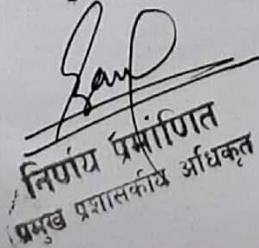 निर्णय प्रमाणित
प्रमुख प्रशासकीय अधिकृत